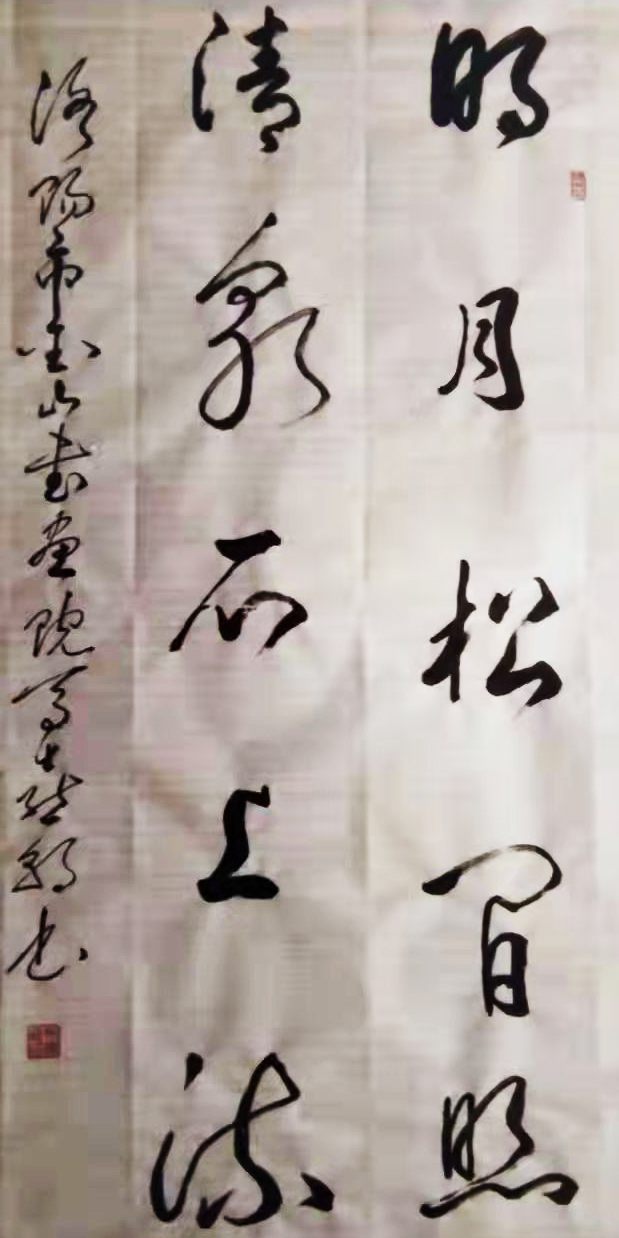 明月松间照
清泉石上流
洛阳市金山书画院
书